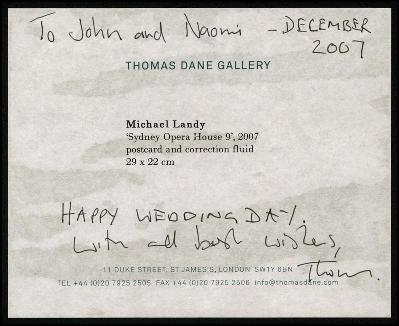 To John and Naomi – DECEMBER
2007
THOMAS DANE GALLERY
Michael Landy
‘Sydney Opera House 9’, 2007
postcard and correction fluid
29 x 22 cm
HAPPY WEDDING DAY.
with all best wishes,
Thomas.
11 DUKE STREET, ST JAMES'S, LONDON SW1Y 6BN
TEL +44 (0)20 7925 2505 FAX +44 (0)20 7925 2606 info@thomasdane.com